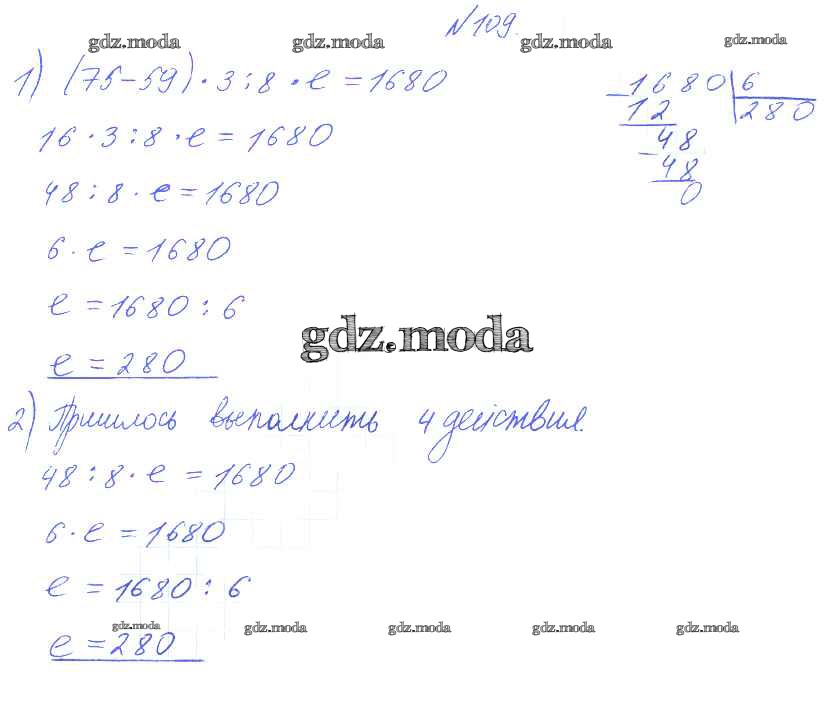 №109.
gdz.moda gdz.moda gdz.moda gdz.moda
1) (75-59)·3:8·е=1680
16·3:8·е=1680
48:8·е=1680
6·е=1680
е=1680:6
е=280
1680 6
12 280
48
48
0
gdz.moda
2) Пришлось выполнить 4 действия.
48:8·е=1680
6·е=1680
е=1680:6
е=280
gdz.moda gdz.moda gdz.moda gdz.moda gdz.moda